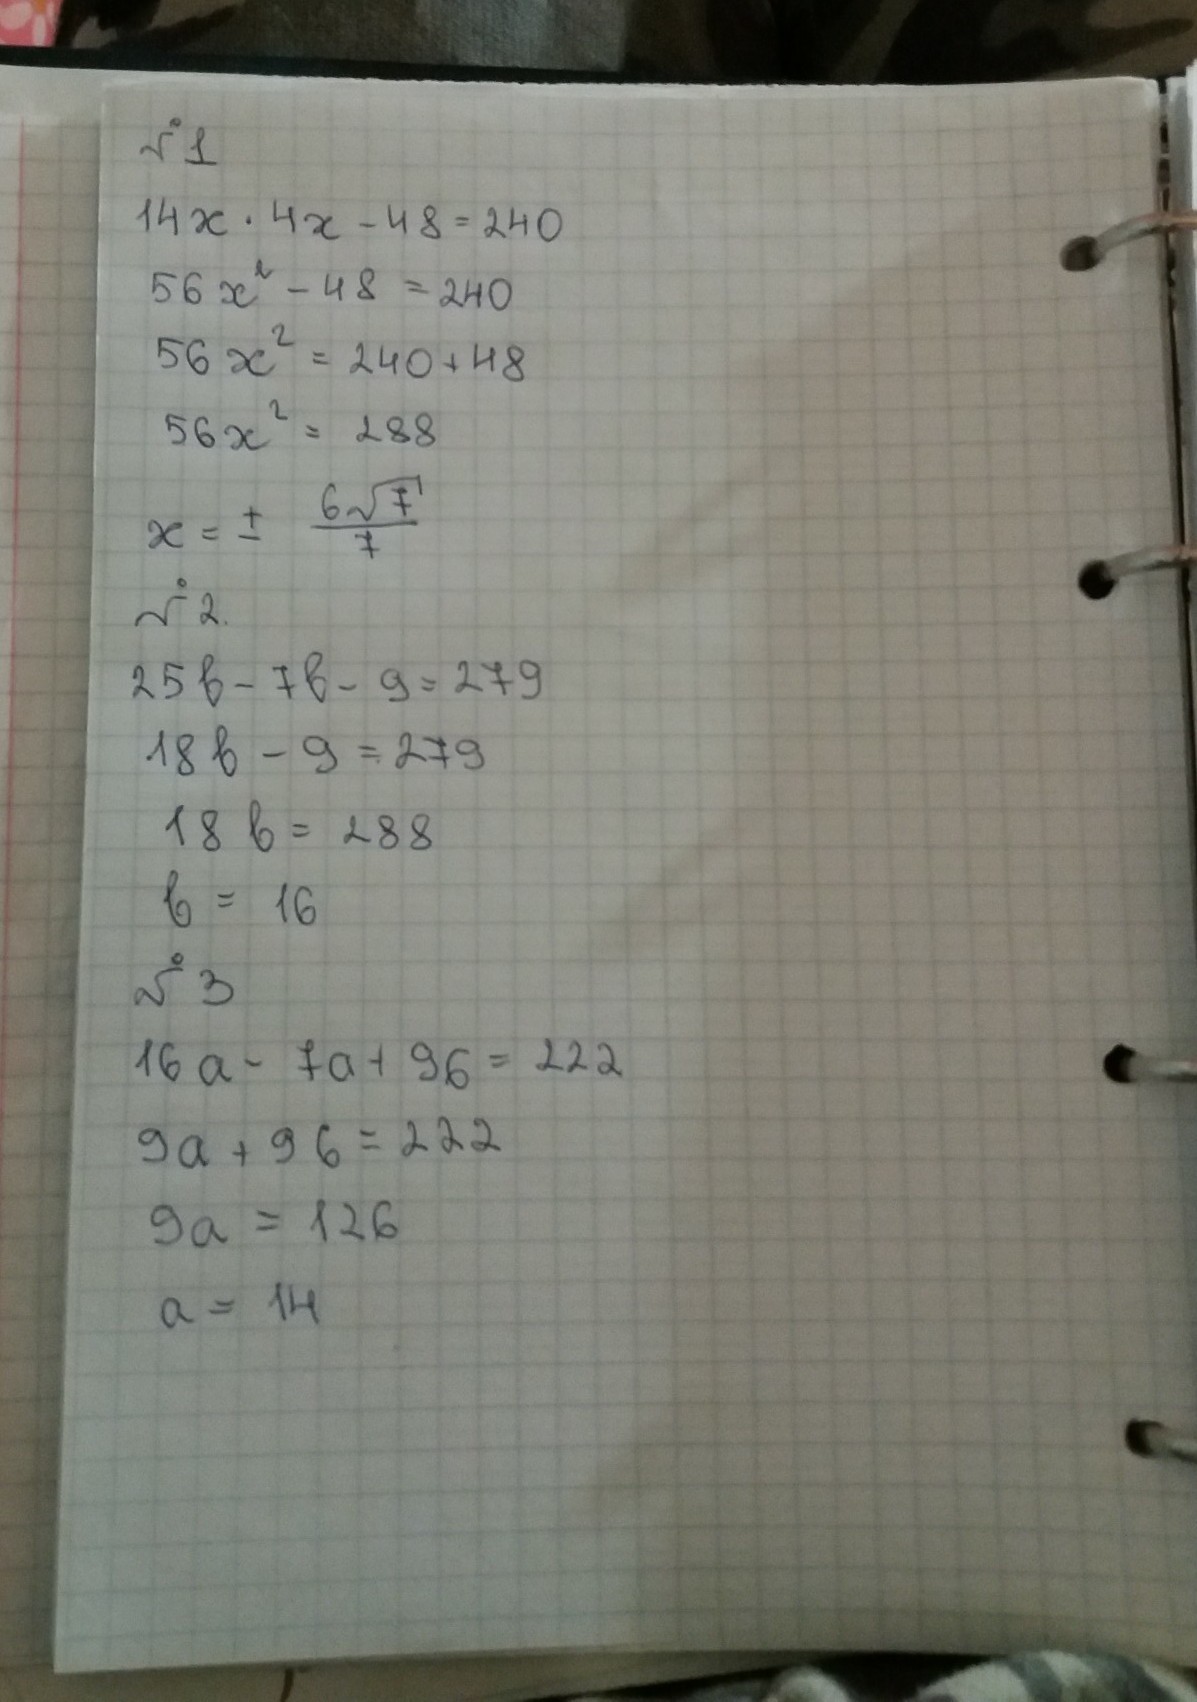 №1
14x · 4x - 48 = 240
56x² - 48 = 240
56x² = 240 + 48
56x² = 288
x = ± 6√7/7
№2.
25b - 7b - 9 = 279
18b - 9 = 279
18b = 288
b = 16
№3
16a - 7a + 96 = 222
9a + 96 = 222
9a = 126
a = 14